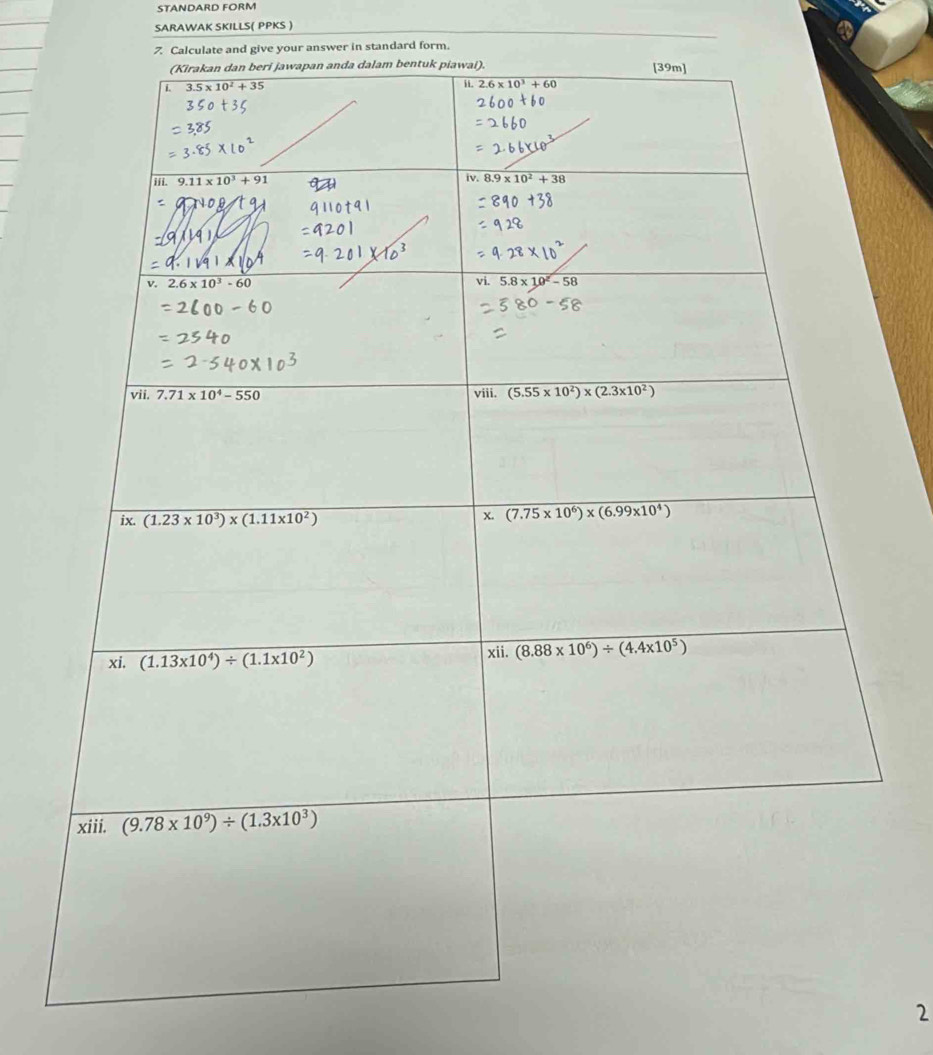 STANDARD FORM
SARAWAK SKILLS( PPKS )
7. Calculate and give your answer in standard form.
(Kirakan dan beri jawapan anda dalam bentuk piawai). [39m]
i. 3.5 x 10² + 35
350 + 35
= 385
= 3.85 × 10²
ii. 2.6 x 10³ + 60
2600 + 60
= 2660
= 2.66×10³
iii. 9.11 x 10³ + 91
9110+91
= 9201
= 9.201 × 10³
iv. 8.9 x 10² + 38
= 890 + 38
= 928
= 9.28 × 10²
v. 2.6 x 10³ - 60
= 2600 - 60
= 2540
= 2.540×10³
vi. 5.8 x 10² – 58
= 580 - 58
=
vii. 7.71 x 10⁴ – 550
viii. (5.55 x 10²) x (2.3x10²)
ix. (1.23 x 10³) x (1.11x10²)
x. (7.75 x 10⁶) x (6.99x10⁴)
xi. (1.13x10⁴) ÷ (1.1x10²)
xii. (8.88 x 10⁶) ÷ (4.4x10⁵)
xiii. (9.78 x 10⁹) ÷ (1.3x10³)
2